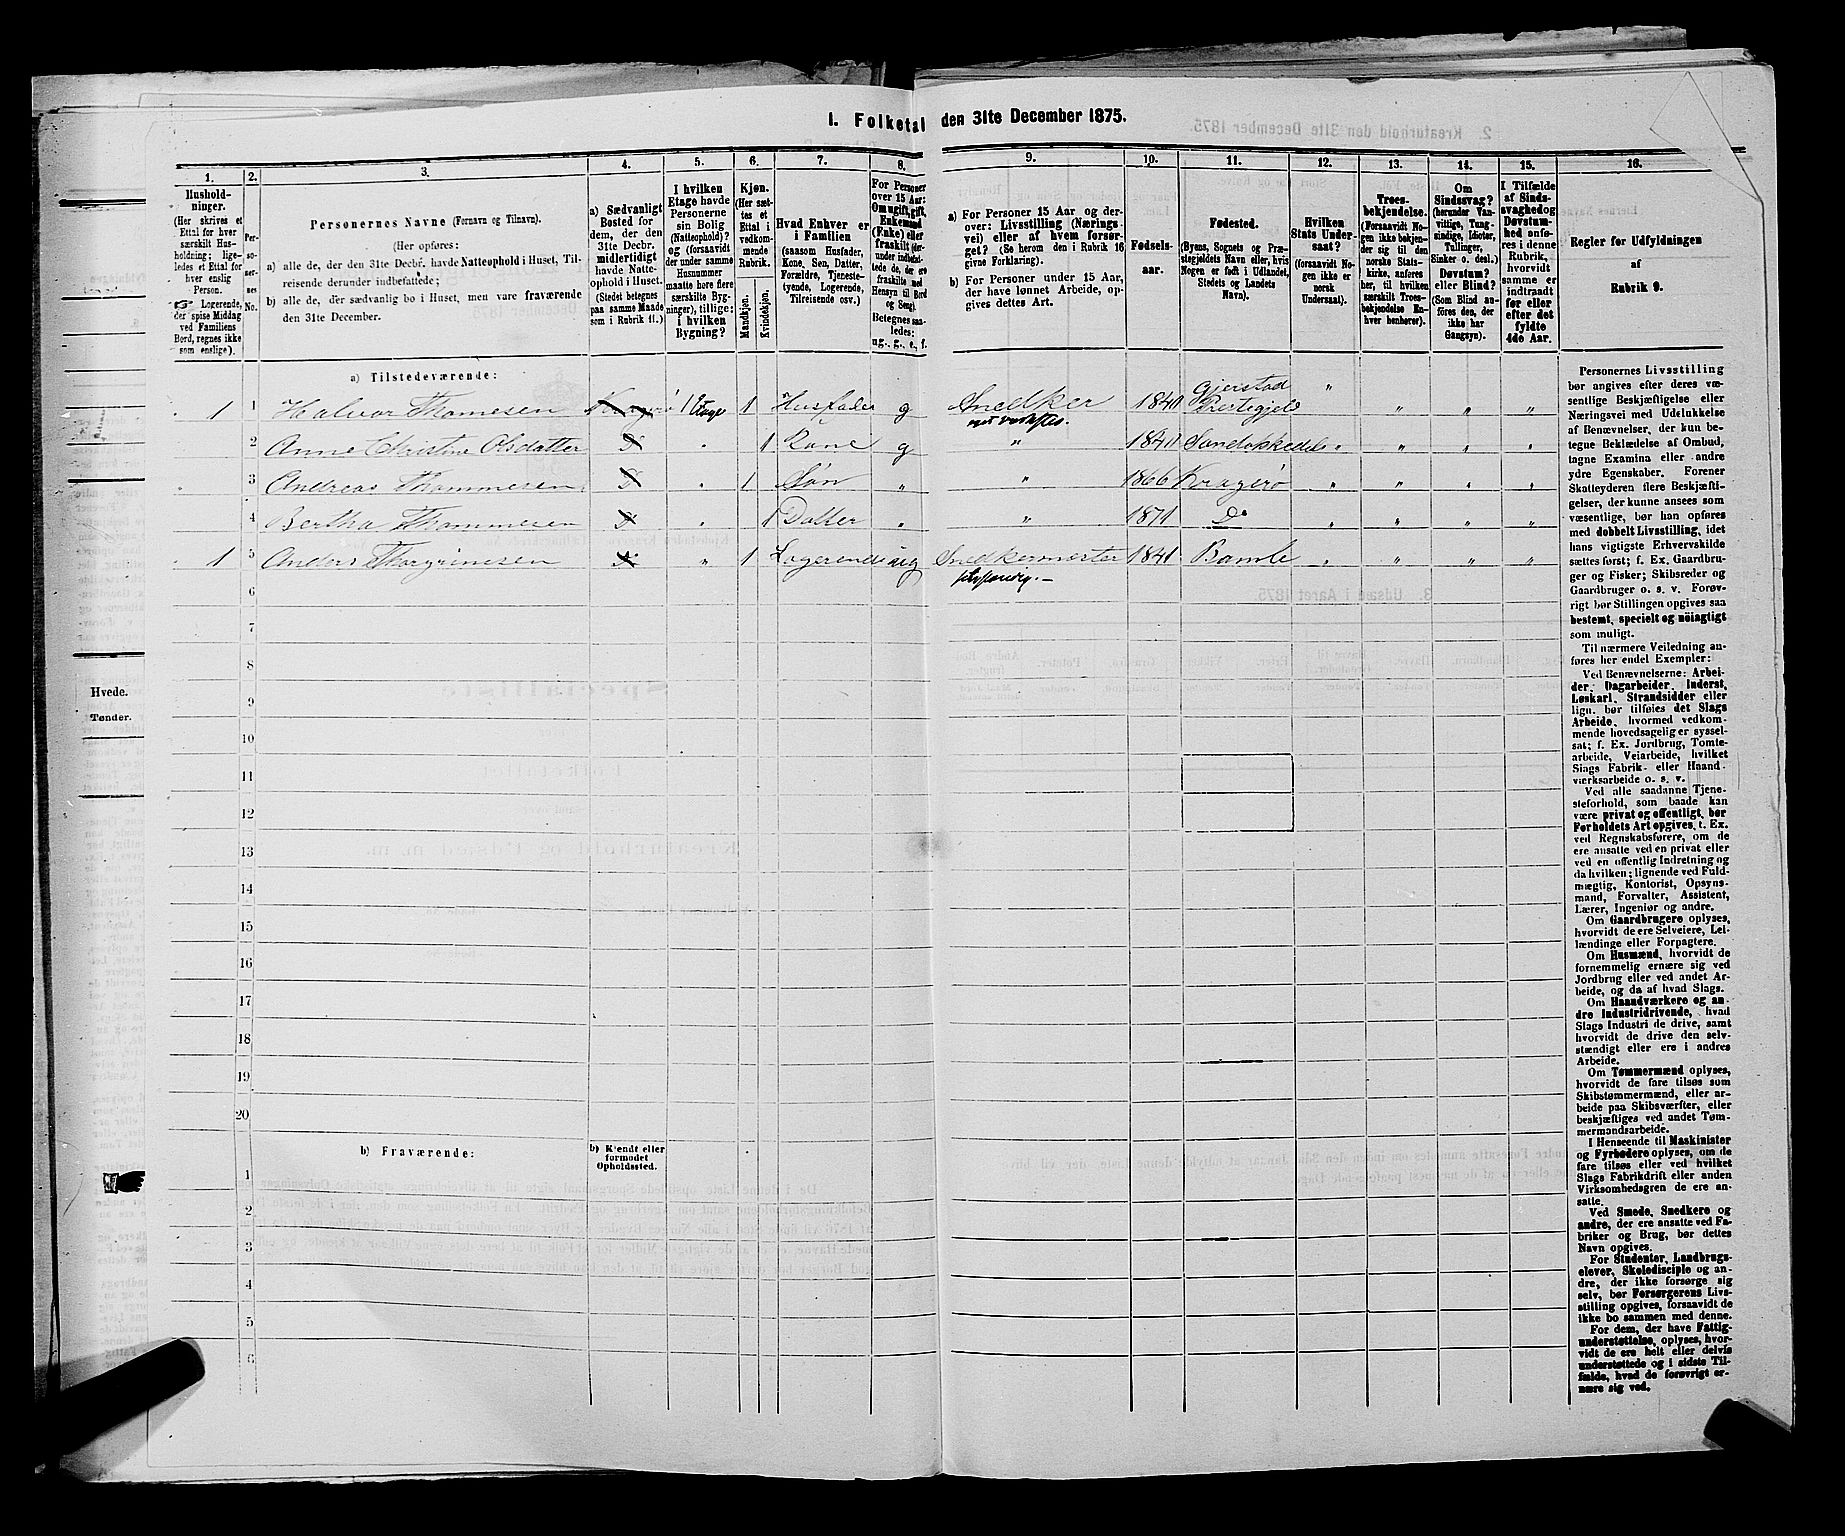 1. Folketal den 31te December 1875.
1. 2. 3. 4. 5. 6. 7. 8. 9. 10. 11. 12. 13. 14. 15. 16.
Hushold-
ninger.
(Her skrives et
Ettal for hver
særskilt Hus-
holdning; lige-
ledes et Ettal for
hver enslig
Person.
☞ Logerende,
der spise Middag
ved Familiens
Bord, regnes ikke
som enslige).
Per-
so-
ner-
nes
No.
Personernes Navne (Fornavn og Tilnavn).
(Her opføres:
a) alle de, der den 31te Decbr. havde Natteophold i Huset, Til-
reisende derunder indbefattede;
b) alle de, der sædvanlig bo i Huset, men vare fraværende
den 31te December.
a) Sædvanligt
Bosted for
dem, der den
31te Decbr.
midlertidigt
havde Natte-
ophold i Huset.
(Stedet betegnes
paa samme Maade
som i Rubrik 11.)
I hvilken
Etage havde
Personerne
sin Bolig
(Natteophold)?
og (forsaavidt
der under samme
Husnummer
maatte høre flere
særskilte Byg-
ninger), tillige:
i hvilken
Bygning?
Kjøn.
(Her sæt-
tes et
Ettal i
vedkom-
mende
Rubrik.
Mandkjøn.
Kvindekjøn.
Hvad Enhver er
i Familien
(saasom Husfader,
Kone, Søn, Datter,
Forældre, Tjeneste-
tyende, Logerende,
Tilreisende osv.)
For Personer
over 15 Aar:
Om ugift, gift,
Enkemand
(Enke) eller
fraskilt (der-
under indbefat-
tede de, der ere
fraskilte med
Hensyn til Bord
og Seng).
Betegnes saa-
ledes:
ug., g., e., f.
a) For Personer 15 Aar og der-
over: Livsstilling (Nærings-
vei) eller af hvem forsør-
get? (Se herom den i Rubrik 16
givne Forklaring).
b) For Personer under 15 Aar,
der have lønnet Arbeide, op-
gives dettes Art.
Fødsels-
aar.
Fødested.
(Byens, Sognets og Præ-
stegjeldets Navn eller, hvis
Nogen er født i Udlandet,
Stedets og Landets
Navn).
Hvilken
Stats Under-
saat?
(forsaavidt No-
gen ikke er
norsk
Undersaat).
Troes-
bekjendelse.
(Forsaavidt No-
gen ikke bekjen-
der sig til den
norske Stats-
kirke, anføres
her, til hvilken
særskilt Troes-
bekjendelse En-
hver henhører).
Om
Sindssvag?
(herunder Van-
vittige, Tung-
sindige, Idioter,
Tullinger,
Sinker o. desl.)
Døvstum?
eller Blind?
(Som Blind an-
føres den, der
ikke har
Gangsyn).
I Tilfælde
af Sinds-
svaghed og
Døvstum-
hed anfø-
res i denne
Rubrik,
hvorvidt
samme er
indtraadt
før eller
efter det
fyldte
4de Aar.
Regler for Udfyldningen
af
Rubrik 9.
a) Tilstedeværende:
1 1 Halvor Thomesen Kragerø 1 Etage 1 Husfader g Snedker 1840 Gjerstad Præstegjeld " " " "
2 Anne Christine Olsdatter D " 1 Kone g " 1840 Sandøkkedel " " " "
3 Andreas Thommesen D " 1 Søn " " 1866 Kragerø " " " "
4 Bertha Thommesen D " 1 Datter " " 1871 Do " " " "
1 5 Anders Thorgrimsen D " 1 Logerende ug Snedkermester 1841 Bamle " " " "
6
7
8
9
10
11
12
13
14
15
16
17
18
19
20
b) Fraværende:
b) Kjendt eller
formodet
Opholdssted.
1
2
3
4
5
6
Personernes Livsstilling
bør angives efter deres væ-
sentlige Beskjæftigelse eller
Næringsvei med Udelukkelse
af Benævnelser, der kun be-
tegne Beklædelse af Ombud,
tagne Examina eller andre
ydre Egenskaber. Forener
Skatteyderen flere Beskjæfti-
gelser, der kunne ansees som
væsentlige, bør han opføres
med dobbelt Livsstilling, idet
hans vigtigste Erhvervskilde
sættes først; f. Ex. Gaardbru-
ger og Fisker; Skibsreder og
Gaardbruger o. s. v. Forøv-
rigt bør Stillingen opgives saa
bestemt, specielt og nöiagtigt
som muligt.
Til nærmere Veiledning an-
føres her endel Exempler:
Ved Benævnelserne: Arbei-
der, Dagarbeider, Inderst,
Løskarl, Strandsidder eller
lign. bør tilføies det Slags
Arbeide, hvormed vedkom-
mende hovedsagelig er syssel-
sat; f. Ex. Jordbrug, Tomte-
arbeide, Veiarbeide, hvilket
Slags Fabrik- eller Haand-
værksarbeide o. s. v.
Ved alle saadanne Tjene-
steforhold, som baade kan
være privat og offentligt, bør
Forholdets Art opgives, t. Ex.
ved Regnskabsførere, om de
ere ansatte ved en privat eller
ved en offentlig Indretning og
da hvilken; lignende ved Fuld-
mægtig, Kontorist, Opsyns-
mand, Forvalter, Assistent,
Lærer, Ingeniør og andre.
Om Gaardbrugere oplyses,
hvorvidt de ere Selveiere, Lei-
lændinge eller Forpagtere.
Om Husmænd, hvorvidt de
fornemmelig ernære sig ved
Jordbrug eller ved andet Ar-
beide, og da af hvad Slags.
Om Haandværkere og an-
dre Industridrivende, hvad
Slags Industri de drive, samt
hvorvidt de drive den selv-
stændigt eller ere i andres
Arbeide.
Om Tømmermænd oplyses,
hvorvidt de fare tilsøs som
Skibstømmermænd, eller ar-
beide paa Skibsværfter, eller
beskjæftiges ved andet Tøm-
mermandsarbeide.
I Henseende til Maskinister
og Fyrbødere oplyses, om de
fare tilsøs eller ved hvilket
Slags Fabrikdrift eller anden
Virksomhedsgren de ere an-
satte.
Ved Smede, Snedkere og
andre, der ere ansatte ved Fa-
briker og Brug, bør dettes
Navn opgives.
For Studenter, Landbrugs-
elever, Skoledisciple og an-
dre, der ikke forsørge sig
selv, bør Forsørgerens Livs-
stilling opgives, forsaavidt de
ikke bo sammen med denne.
For dem, der have Fattig-
understøttelse, oplyses, hvor-
vidt de ere helt eller delvis
understøttede og i sidste Til-
fælde, hvad de forøvrigt er-
nære sig ved.
Hvede.
Tønder.